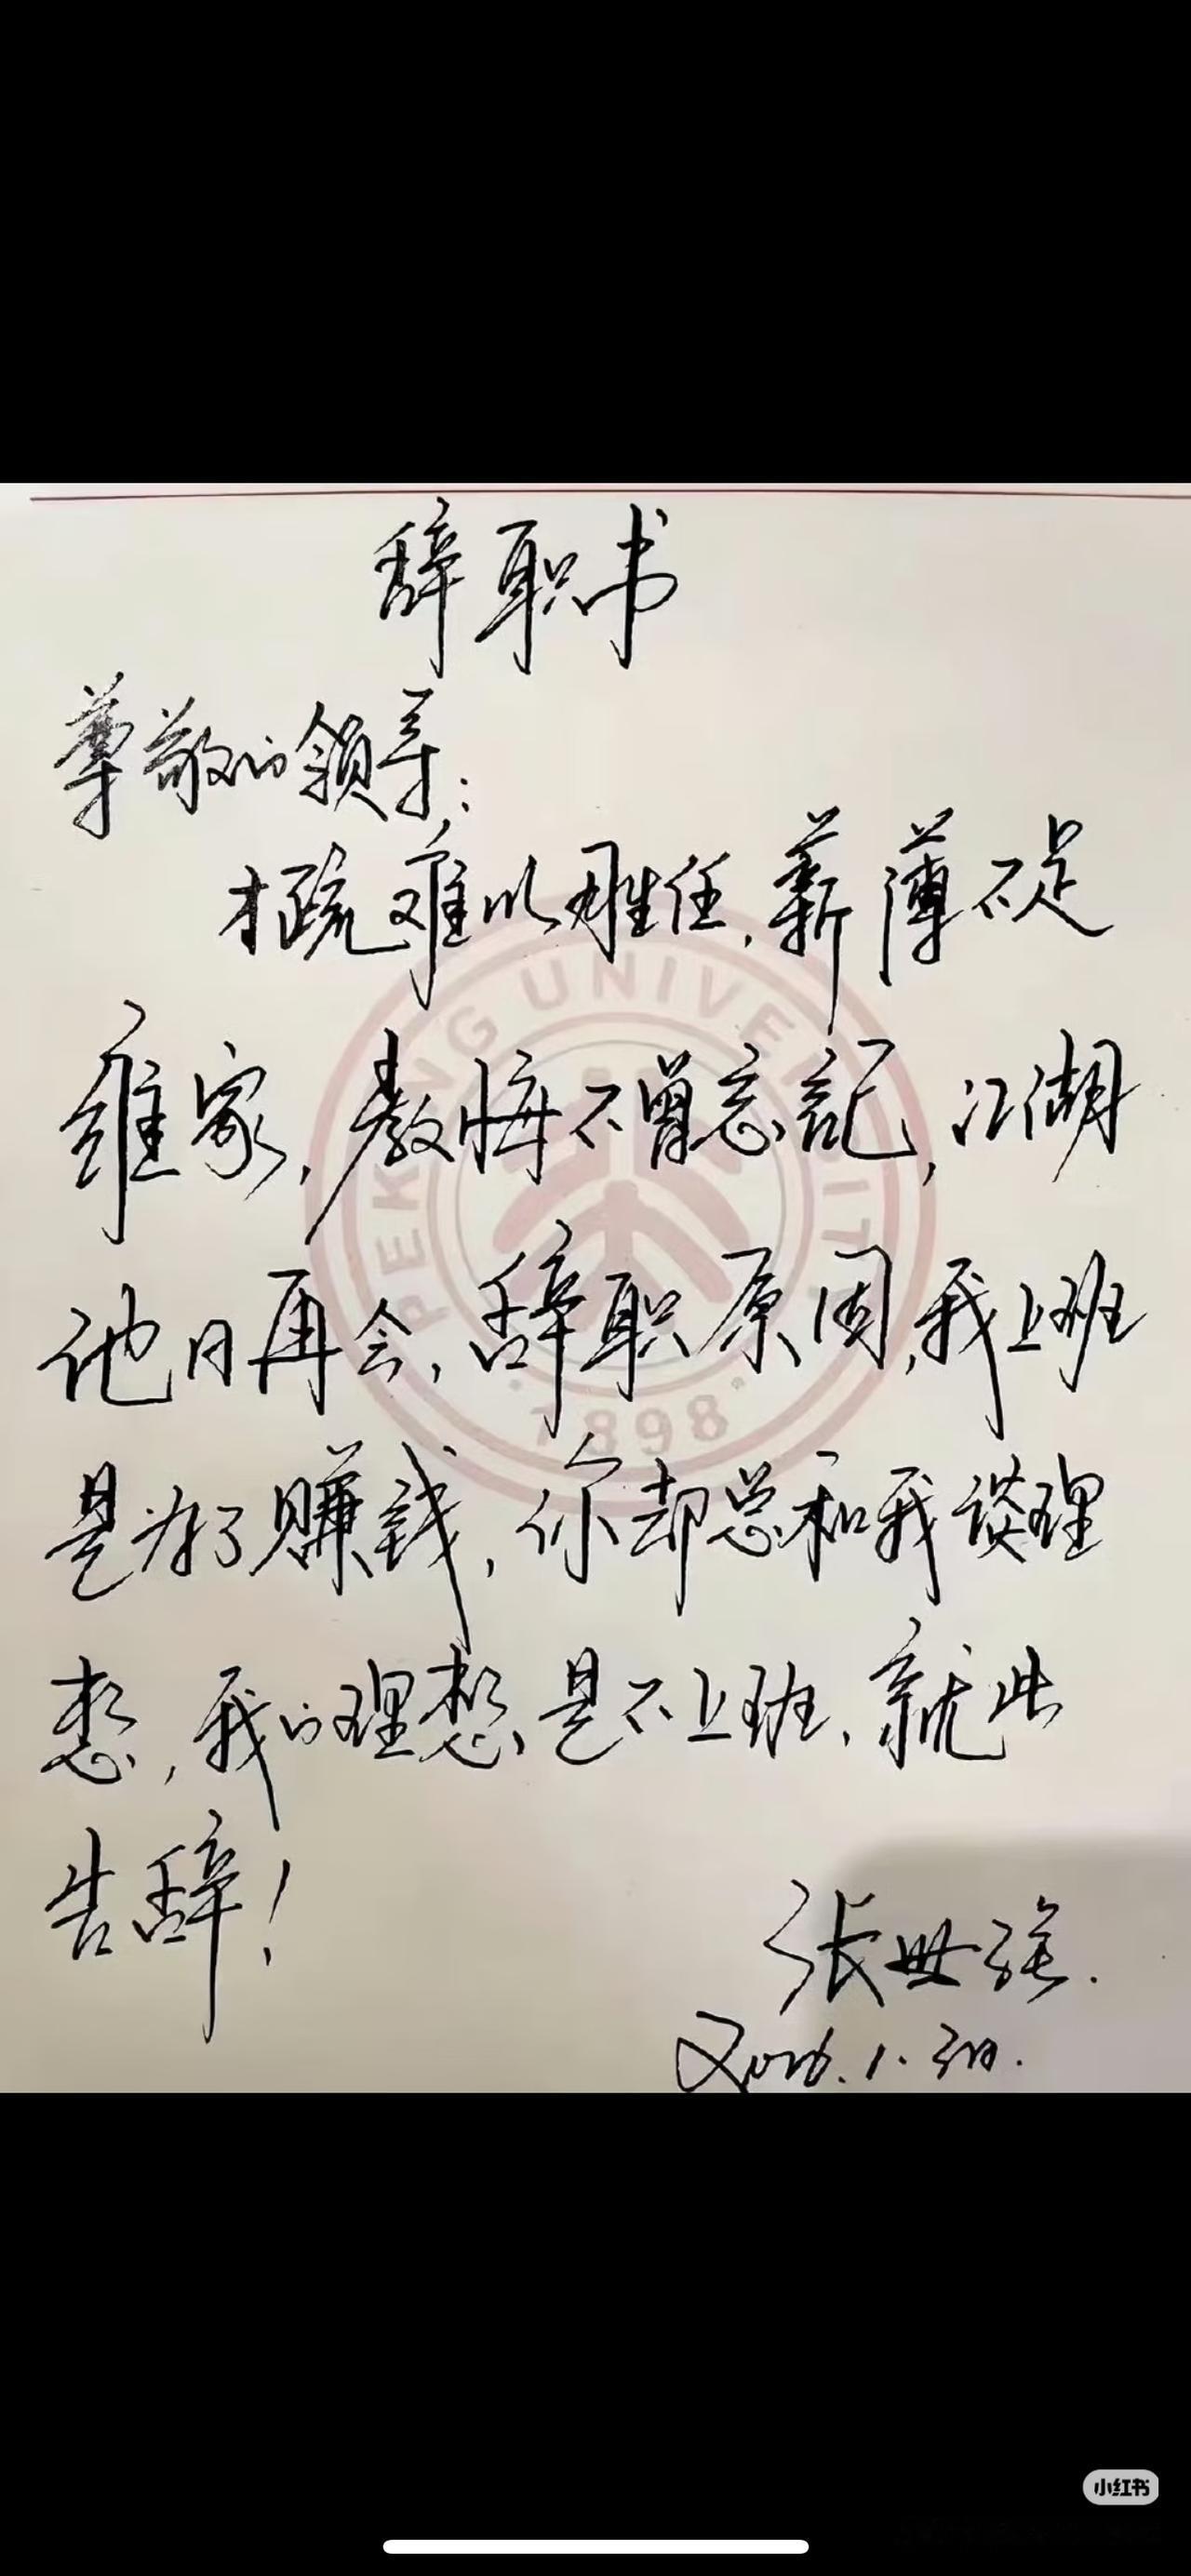 辞职书
尊敬的领导:
才疏难以胜任,薪薄不足
维家,教悔不曾忘记,江湖
他日再会,辞职原因,我上班
是为了赚钱,你却总和我谈理
想,我的理想是不上班,就此
告辞!
张世强.
PEKING UNIVERSITY
1898
小红书